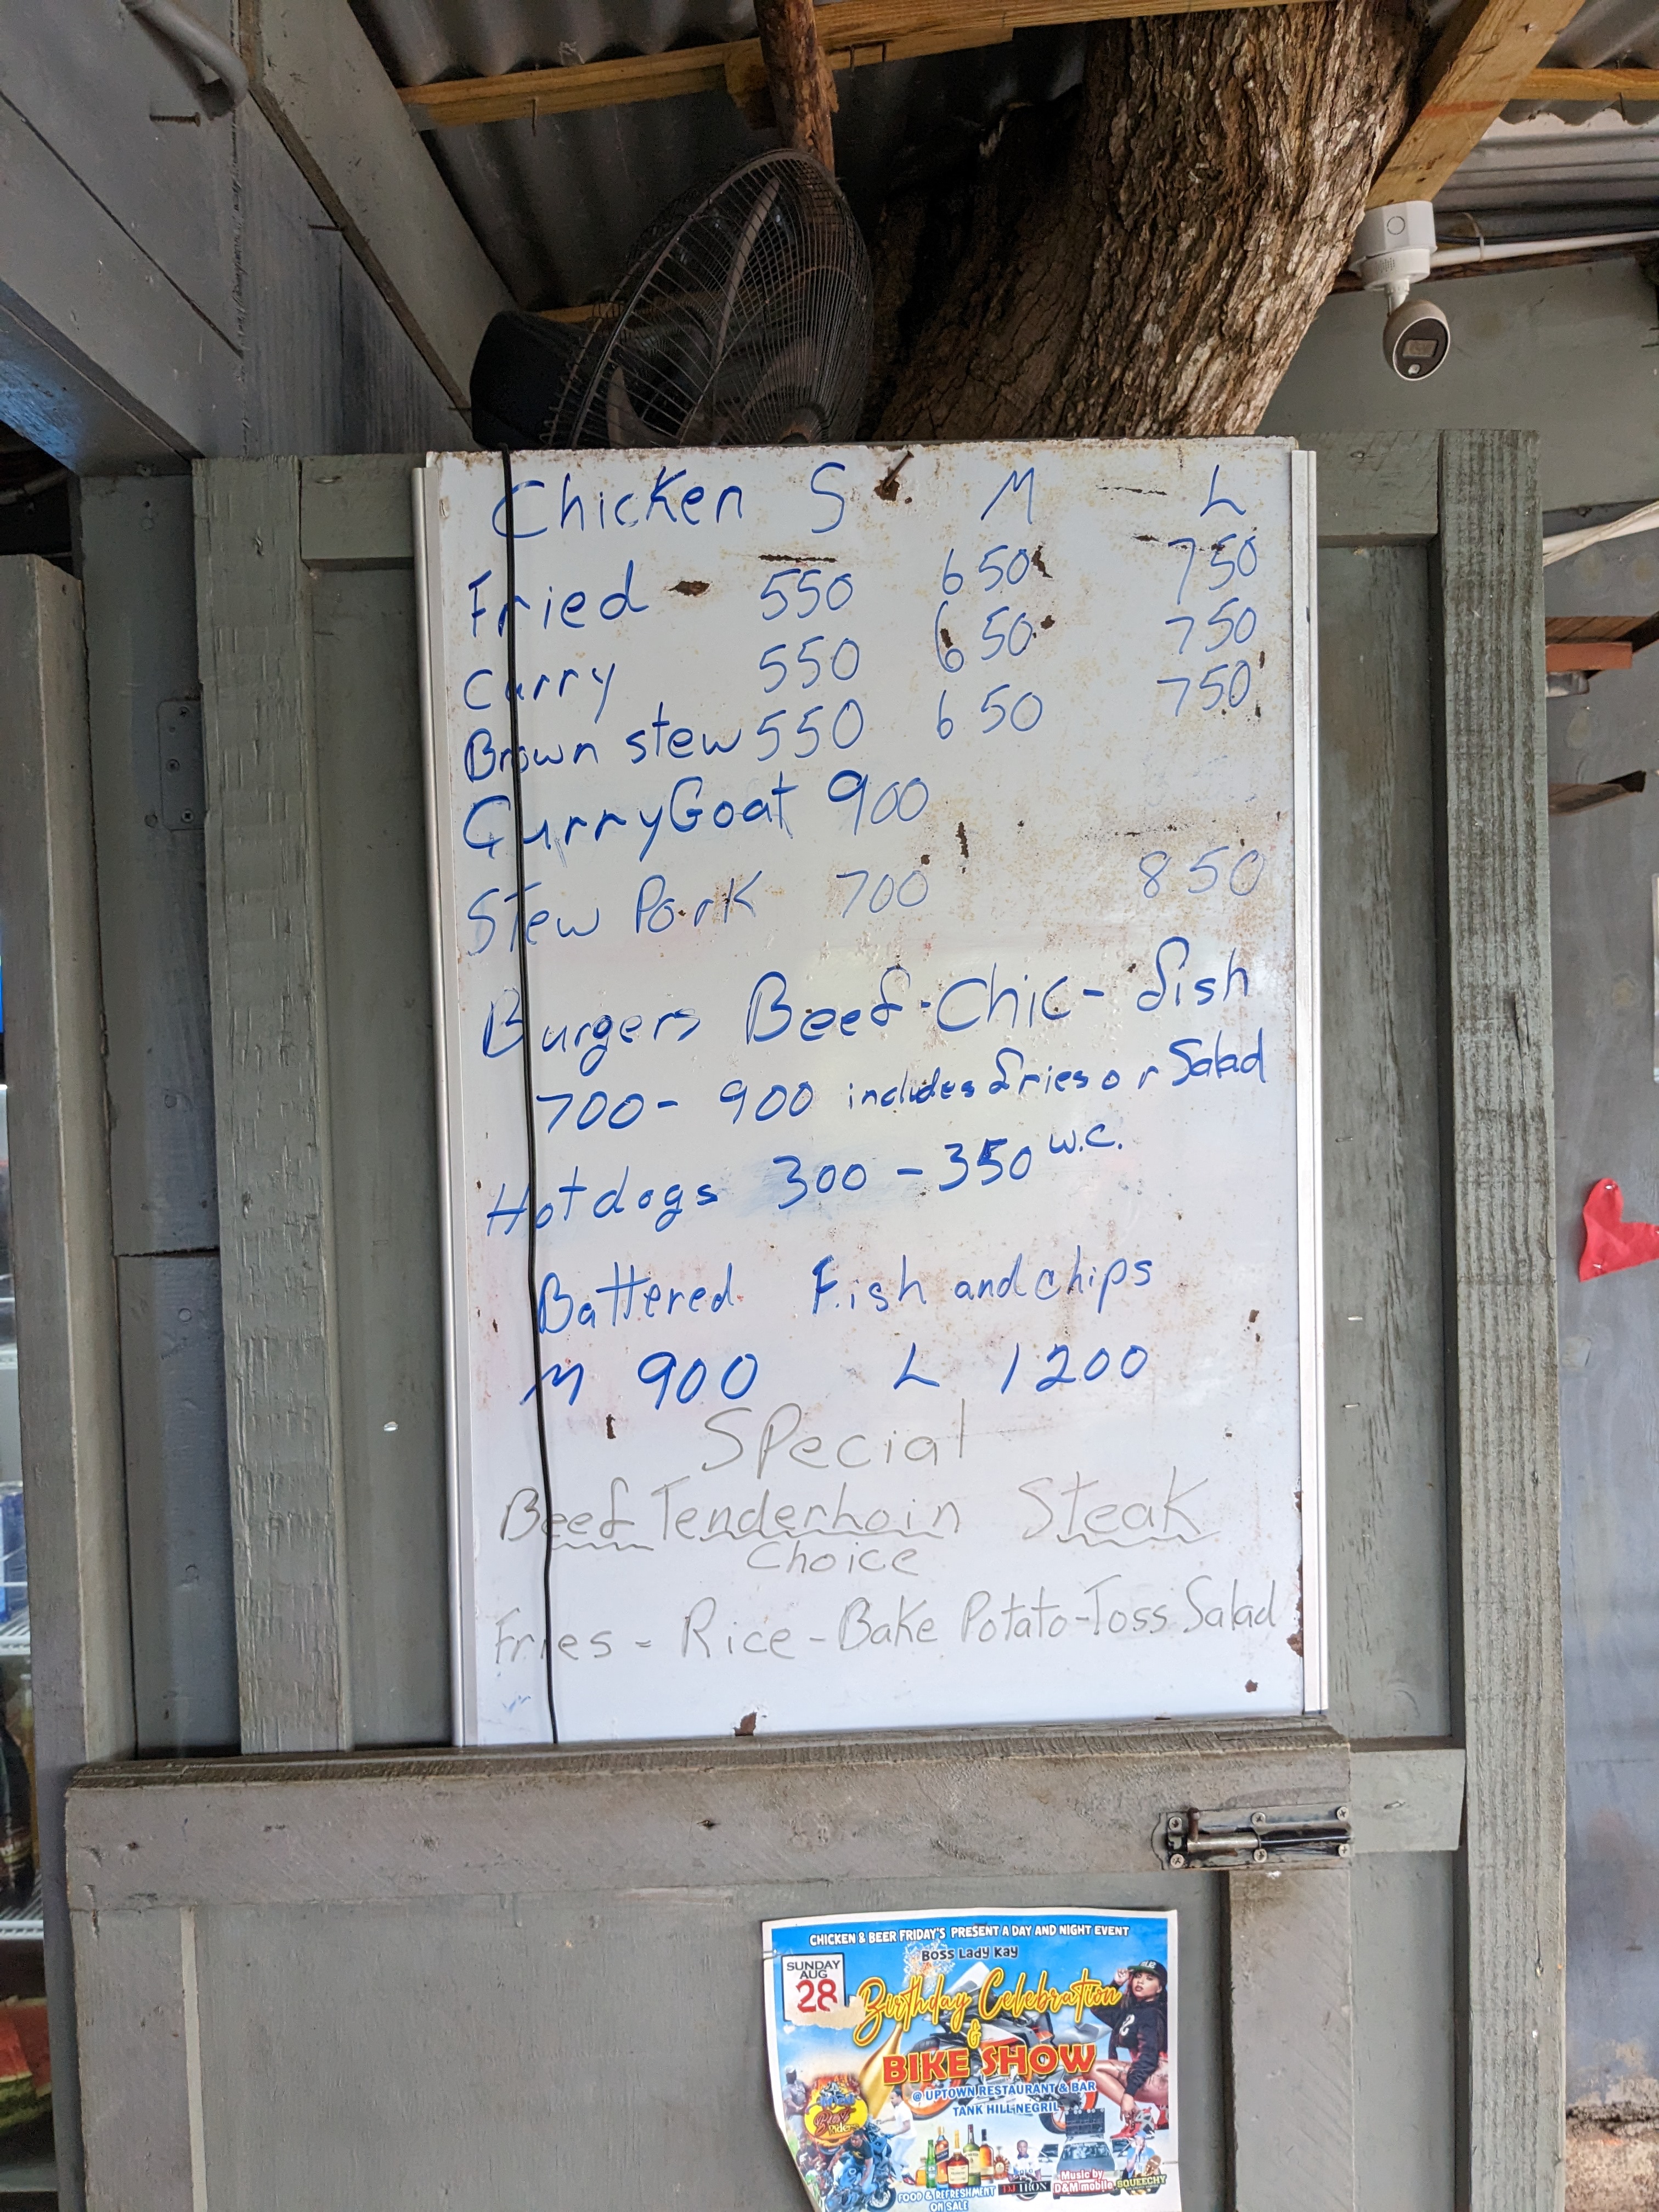 Chicken S M L
Fried 550 650 750
Curry 550 650 750
Brown stew 550 650 750
Curry Goat 900
Stew Pork 700 850
Burgers Beef-Chic-fish
700- 900 includes fries or Salad
Hotdogs 300 - 350 w.c.
Battered Fish and chips
M 900 L 1200
Special
Beef Tenderhoin Steak
Choice
Fries - Rice - Bake Potato-Toss Salad
CHICKEN & BEER FRIDAY'S PRESENT A DAY AND NIGHT EVENT
BOSS LADY KAY
SUNDAY
AUG
28
Birthday Celebration
&
BIKE SHOW
@ UPTOWN RESTAURANT & BAR
TANK HILL NEGRIL
FOOD & REFRESHMENT
ON SALE
DJ IRON
Music by
D&M mobile
SQUEECHY